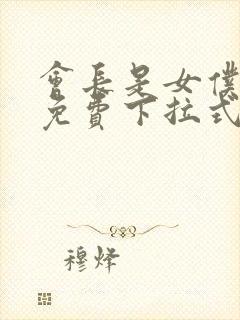 會長是女僕
免費下拉式
穆烽